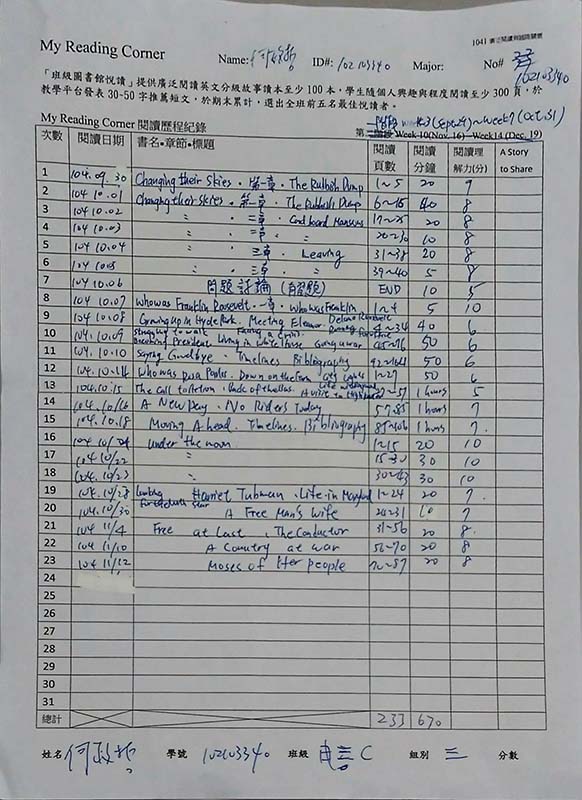 1041 廣泛閱讀與國際關懷
My Reading Corner Name: 何政哲 ID#: 102103340 Major: No#
102103340
「班級圖書館悅讀」提供廣泛閱讀英文分級故事讀本至少 100 本，學生隨個人興趣與程度閱讀至少 300 頁，於
教學平台發表 30-50 字推薦短文，於期末累計，選出全班前五名最佳悅讀者。
一階段 week3(Sep.29)~week7(Oct.31)
My Reading Corner 閱讀歷程紀錄 第二階段 Week 10(Nov. 16) ─Week14 (Dec. 19)
次數 閱讀日期 書名▪章節▪標題 閱讀頁數 閱讀分鐘 閱讀理解力(分) A Story to Share
1 104.09.30 Changing their Skies . 第一章 . The Rubbish Dump 1~5 20 9
2 104 10.01 Changing their Skies . 第一章 . The Rubbish Dump 6~16 40 8
3 104 10.02 〃 . 二章 . Cardboard Mansions 17~25 20 8
4 104 10.03 〃 . 二章 . 〃 10 8
5 104 10.04 〃 . 三章 . Leaving 31~38 20 8
6 104 10.05 〃 . 三章 . 〃 39~40 5 8
7 104 10.06 問題討論 (習題) END 10 5
8 104 10.07 Who was Franklin Roosevelt . 一章 . Who was Franklin Delano Roosevelt 1~4 5 10
9 104 10.08 Growing up in Hyde Park . Meeting Eleanor 40 6
10 104 10.09 Struggling to walk becoming President Living in White House Going to war 50 6
11 104 10.10 Saying Goodbye . Timelines Bibliography 50 6
12 104 10.14 Who was Rosa Parks . Down on the farm 1~27 50 6
13 104.10.15 The call to Action A visit to Highlander 1 hours 5
14 104.10/16 A New Day . No Riders Today 57~85 1 hours 7
15 104.10.18 Moving Ahead . Timelines . Bibliography 85~106 1 hours 7
16 104 10/21 Under the moon 1~15 20 10
17 104 10/22 〃 15~30 30 10
18 104 10/23 〃 30~43 30 10
19 104.10/28 Harriet Tubman . Life in Maryland 1~24 20 7
20 104.10/30 A Free Man's Wife 24~31 10 7
21 104 11/4 Free at Last . The Conductor 31~56 20 8
22 104 11/10 A Country at war 56~70 20 8
23 104 11/12 Moses of Her people 70~87 20 8
24
25
26
27
28
29
30
31
總計 233 670
姓名 何政哲 學號 102103340 班級 C 組別 三 分數